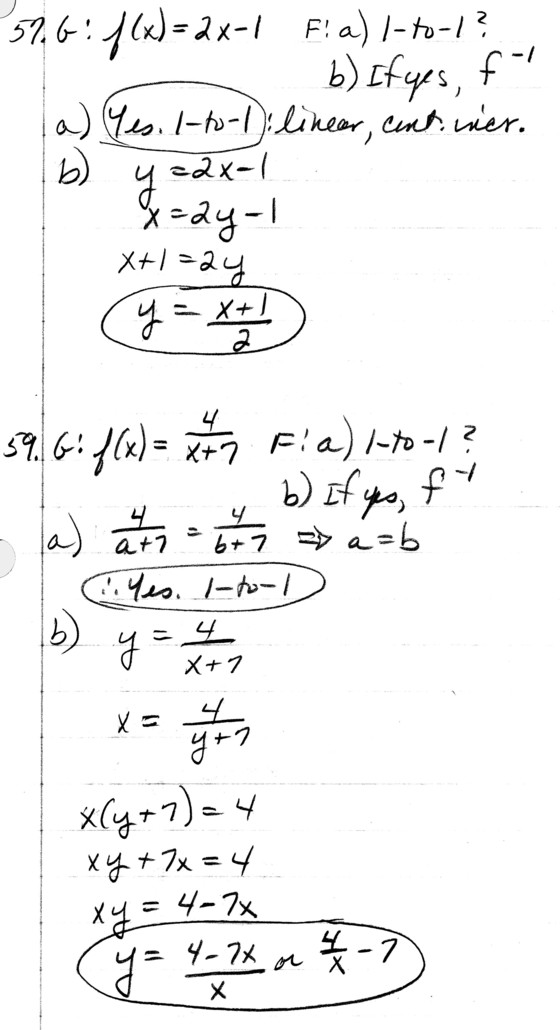 57. G: f(x) = 2x-1 F: a) 1-to-1?
b) If yes, f⁻¹
a) Yes. 1-to-1: linear, cont. incr.
b) y = 2x-1
x = 2y-1
x+1 = 2y
y = (x+1)/2
59. G: f(x) = 4/(x+7) F: a) 1-to-1?
b) If yes, f⁻¹
a) 4/(a+7) = 4/(b+7) ⇒ a=b
∴ Yes. 1-to-1
b) y = 4/(x+7)
x = 4/(y+7)
x(y+7) = 4
xy + 7x = 4
xy = 4-7x
y = (4-7x)/x or 4/x - 7